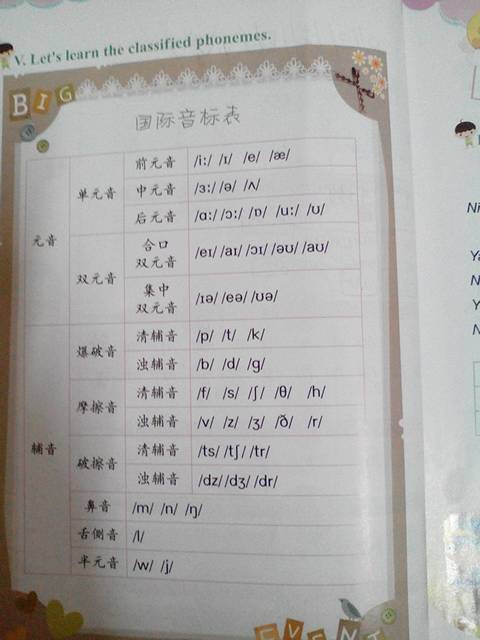 V. Let's learn the classified phonemes.
BIG
国际音标表
元音
单元音
前元音 /iː/ /ɪ/ /e/ /æ/
中元音 /ɜː/ /ə/ /ʌ/
后元音 /ɑː/ /ɔː/ /ɒ/ /uː/ /ʊ/
双元音
合口
双元音 /eɪ/ /aɪ/ /ɔɪ/ /əʊ/ /aʊ/
集中
双元音 /ɪə/ /eə/ /ʊə/
辅音
爆破音
清辅音 /p/ /t/ /k/
浊辅音 /b/ /d/ /g/
摩擦音
清辅音 /f/ /s/ /ʃ/ /θ/ /h/
浊辅音 /v/ /z/ /ʒ/ /ð/ /r/
破擦音
清辅音 /ts/ /tʃ/ /tr/
浊辅音 /dz/ /dʒ/ /dr/
鼻音 /m/ /n/ /ŋ/
舌侧音 /l/
半元音 /w/ /j/